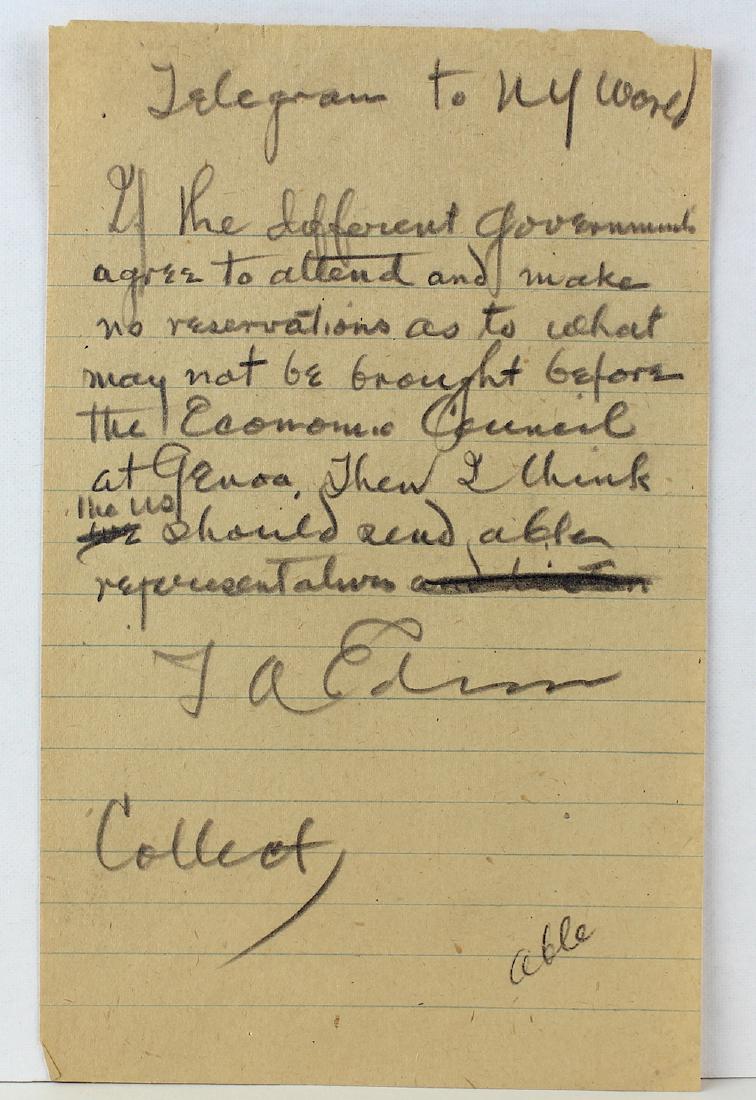 Telegram to NY World
If the different Governments
agree to attend and make
no reservations as to what
may not be brought before
the Economic Council
at Genoa, Then I think
the US
we should send able
representatives and listen
T A Edison
Collect
able